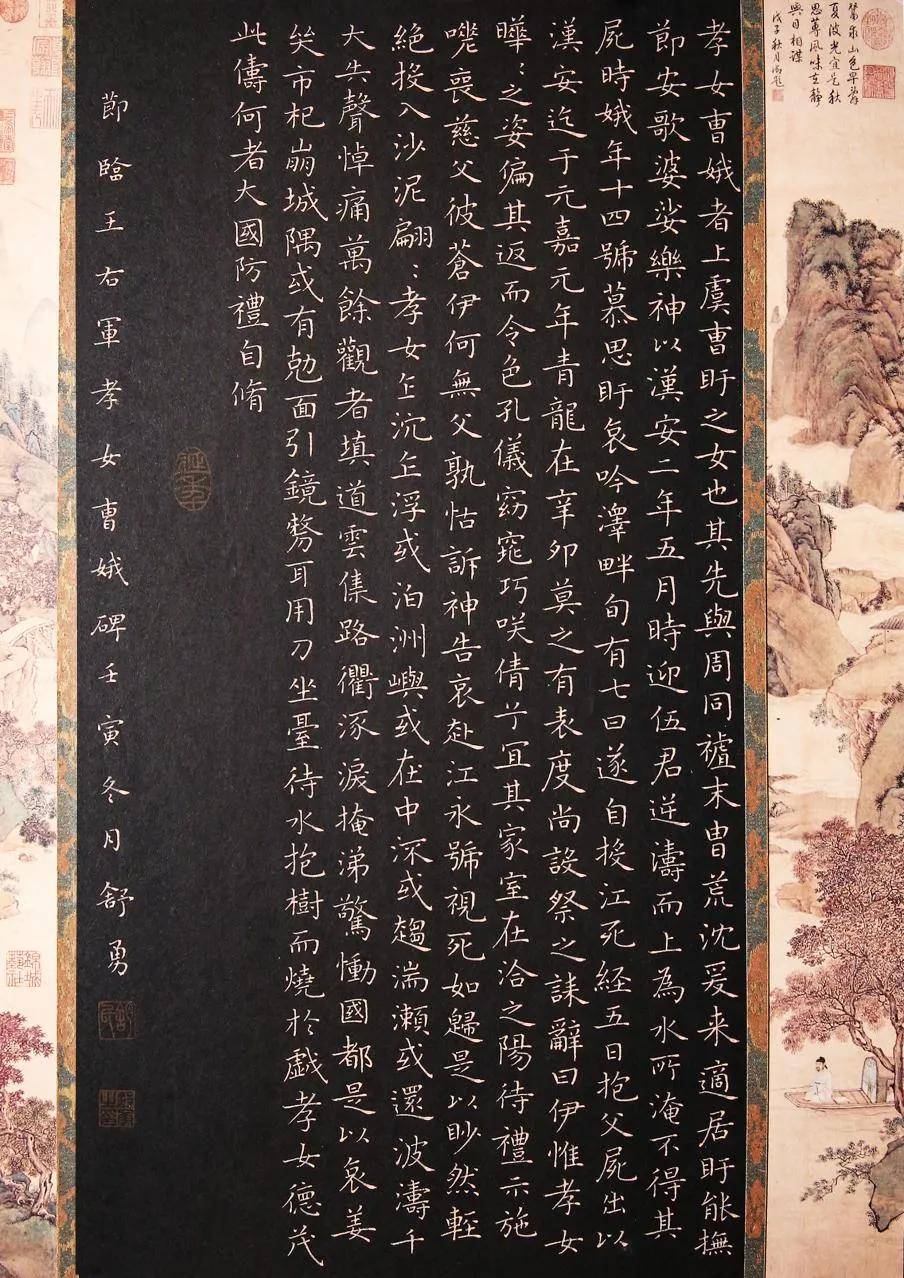 夏波光宜是秋
與目相謀
孝女曺娥者上虞曺盱之女也其先與周同襤末曺荒沈爰来適居盱能撫
節安歌婆娑樂神以漢安二年五月時迎伍君逆濤而上為水所淹不得其
屍時娥年十四號慕思盱哀吟澤畔旬有七日遂自投江死経五日抱父屍出以
漢安迄于元嘉元年青龍在辛卯莫之有表度尚設祭之誄辭曰伊惟孝女
曄:之姿偏其返而令色孔儀窈窕巧咲倩兮冝其家室在洽之陽待禮示施
嗟喪慈父彼蒼伊何無父孰怙訴神告哀赴江永號視死如歸是以眇然輕
絶投入沙泥翩:孝女乍沉乍浮或泊洲嶼或在中流或趨湍瀬或還波濤千
大失聲悼痛萬餘觀者填道雲集路衢涿淚掩涕驚慟國都是以哀姜
矦市杞崩城隅或有勊面引鏡剺耳用刀坐臺待水抱樹而燒於戯孝女德茂
此儔何者大國防禮自脩
節臨王右軍孝女曺娥碑壬寅冬月舒勇